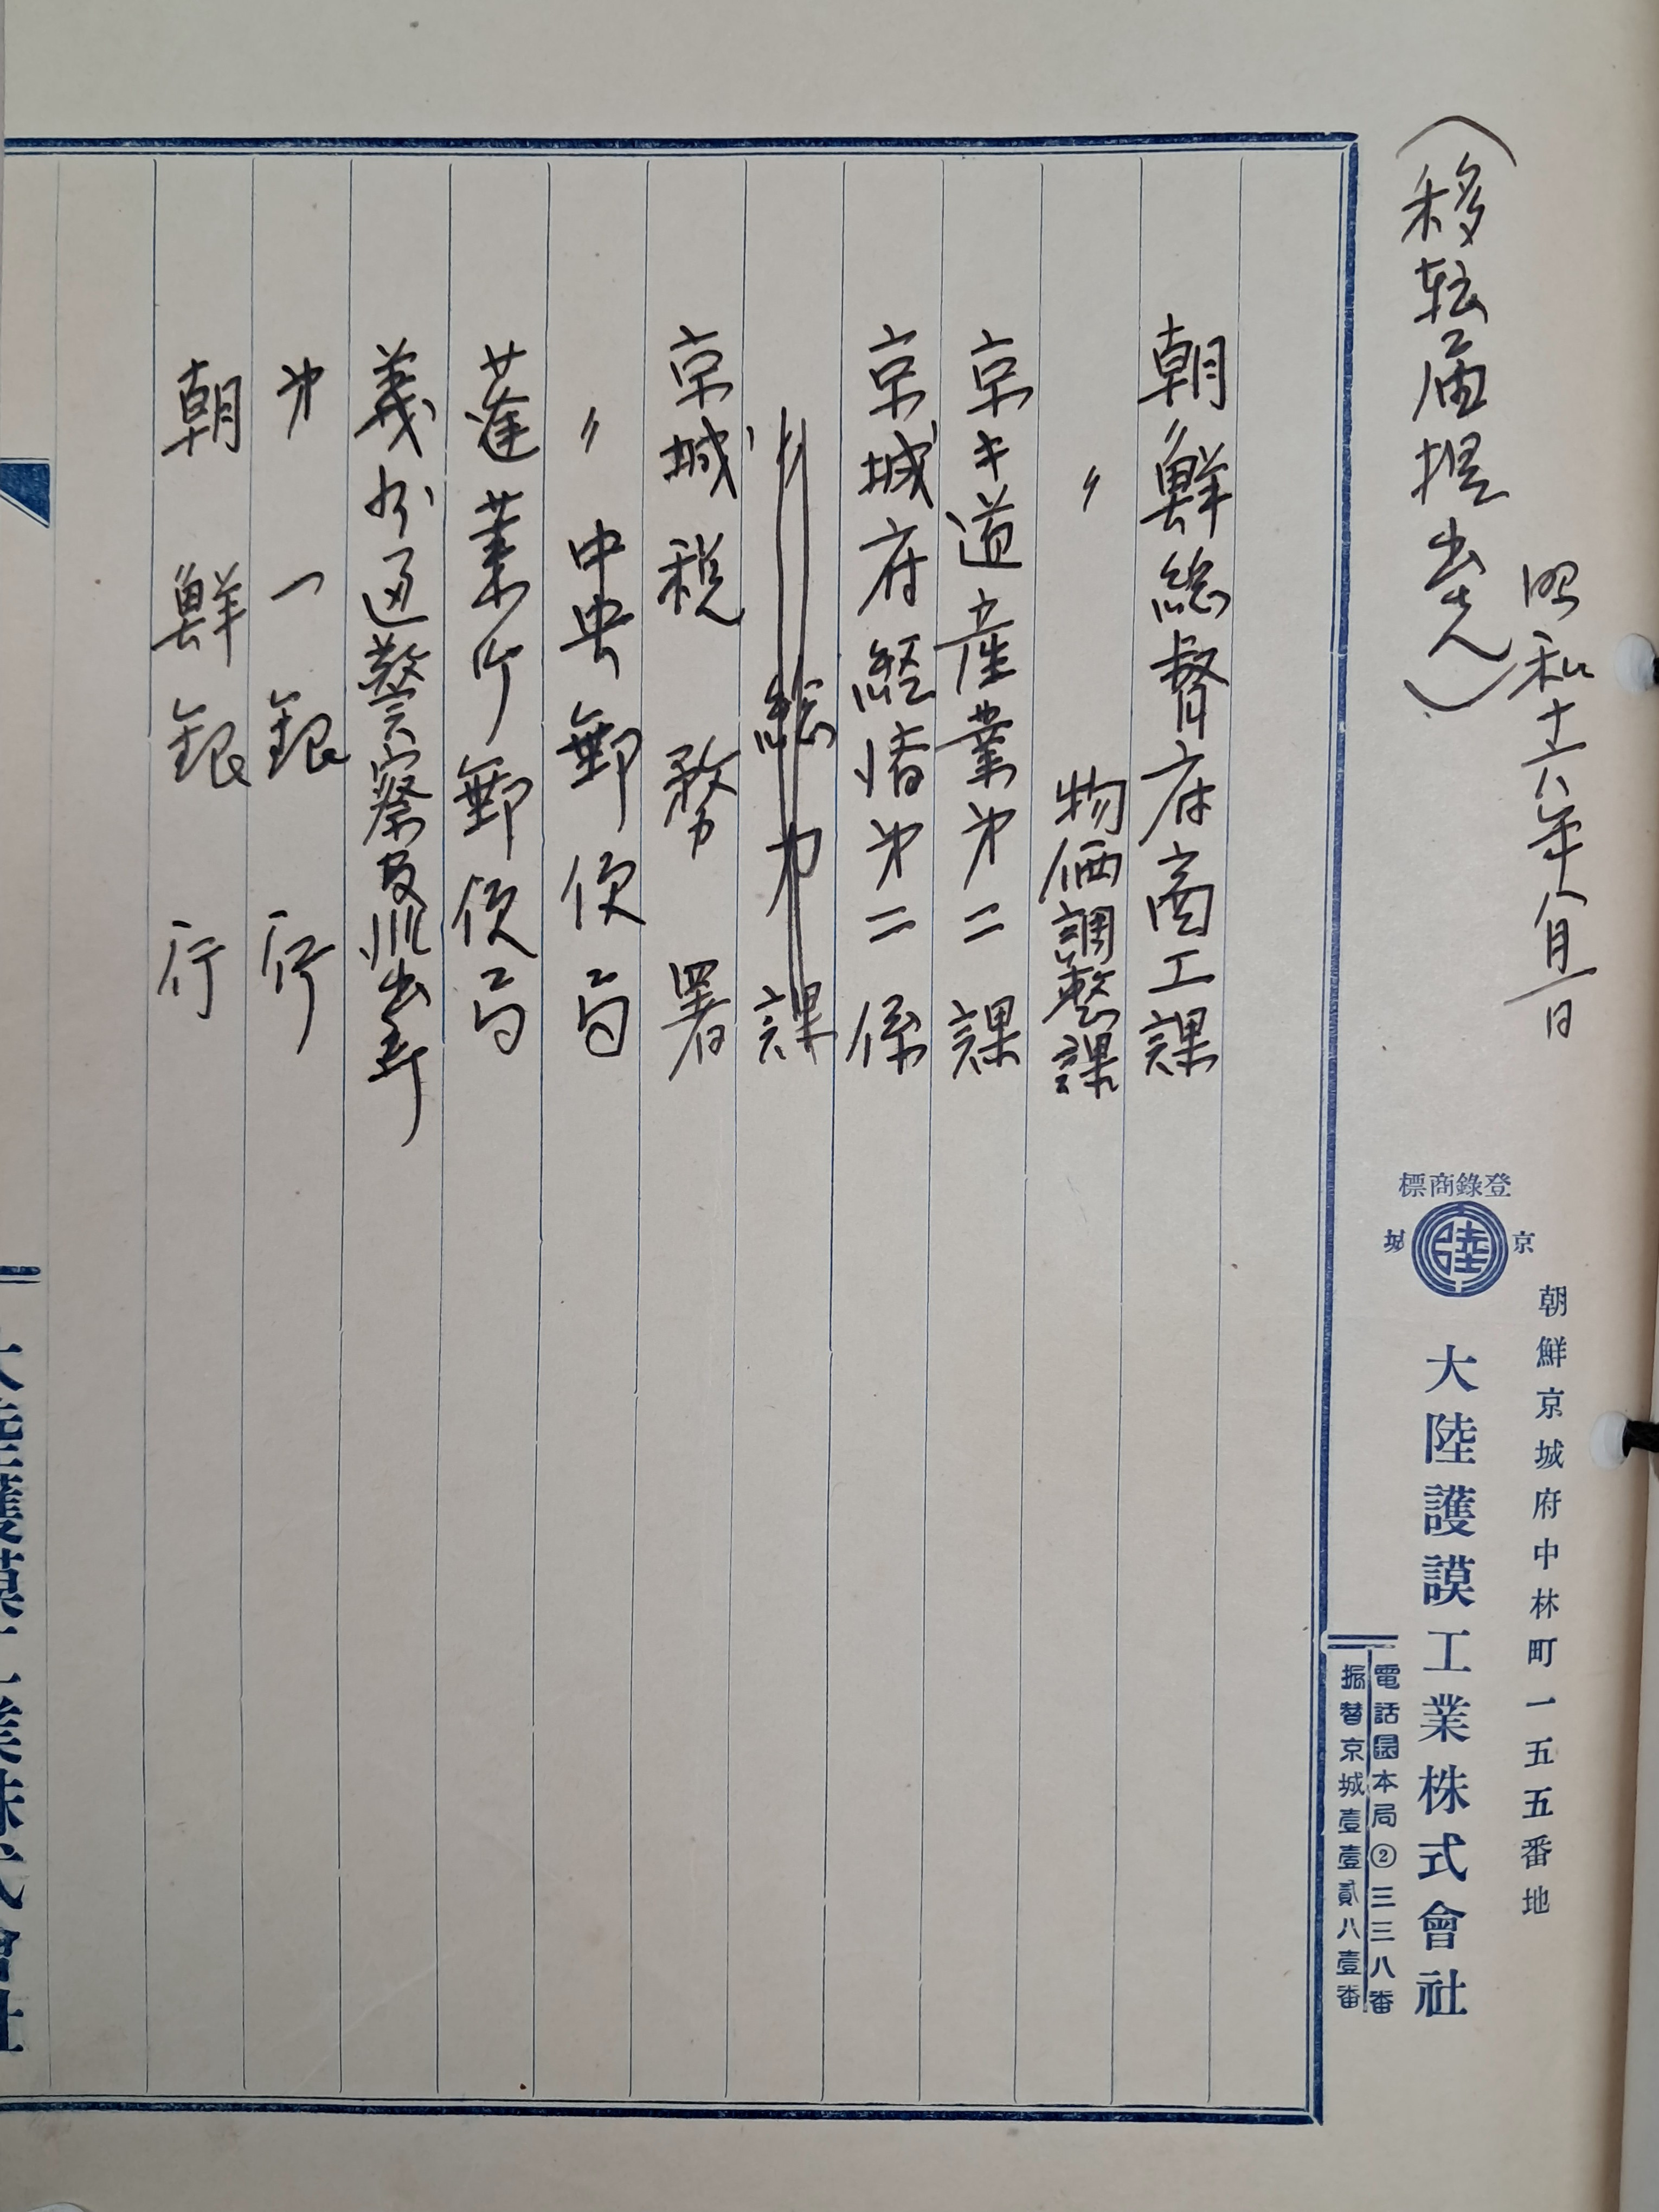 昭和十六年八月一日
(移転届提出先)
朝鮮総督府商工課
〃 物価調整課
京キ道産業㐧二課
京城府経済㐧二係
〃 総力課
京城税務署
〃 中央郵便局
蓬莱町郵便局
義州通警察及派出所
㐧一銀行
朝鮮銀行
朝鮮京城府中林町一五五番地
登錄商標
京城
陸
大陸護謨工業株式會社
電話本局②三三八番
振替京城壹壹貳八壹番
大陸護謨工業株式會社